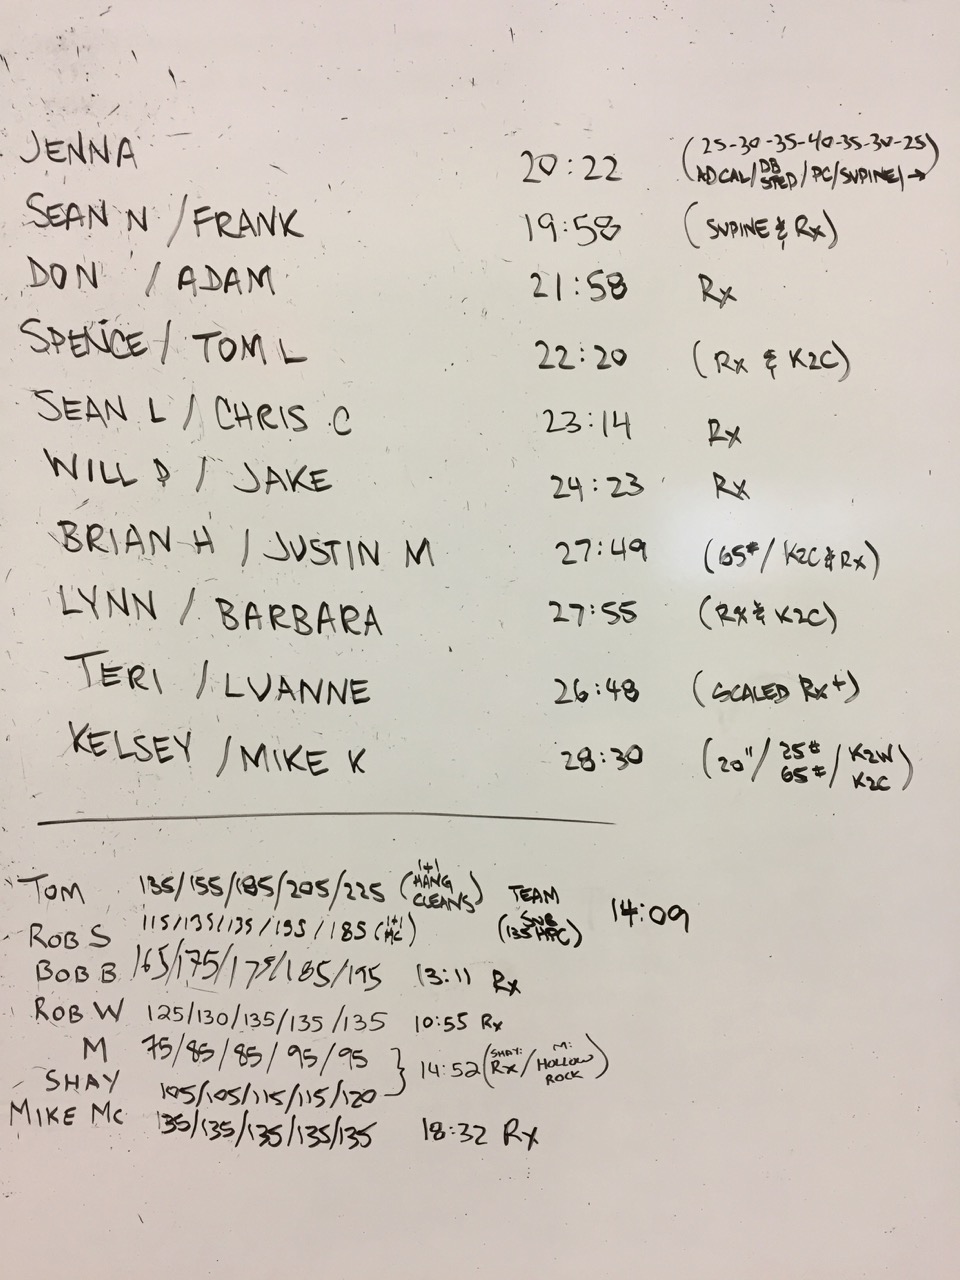 JENNA 20:22 (25-30-35-40-35-30-25)
AD CAL/DB STEP/PC/SUPINE/→
SEAN N / FRANK 19:58 (SUPINE & Rx)
DON / ADAM 21:58 Rx
SPENCE / TOM L 22:20 (Rx & K2C)
SEAN L / CHRIS C 23:14 Rx
WILL D / JAKE 24:23 Rx
BRIAN H / JUSTIN M 27:49 (65#/ K2C & Rx)
LYNN / BARBARA 27:55 (Rx & K2C)
TERI / LUANNE 26:48 (SCALED Rx+)
KELSEY / MIKE K 28:30 (20"/ 25# 65# / K2W K2C)
TOM 135/155/185/205/225 (1+1 HANG CLEANS) TEAM 14:09
ROB S 115/135/135/155/185 (1+1 HC) (SUB 135 HPC)
BOB B 165/175/175/185/195 13:11 Rx
ROB W 125/130/135/135/135 10:55 Rx
M 75/85/85/95/95 } 14:52 (SHAY: Rx/ M: HOLLOW ROCK)
SHAY 105/105/115/115/120
MIKE MC 135/135/135/135/135 18:32 Rx